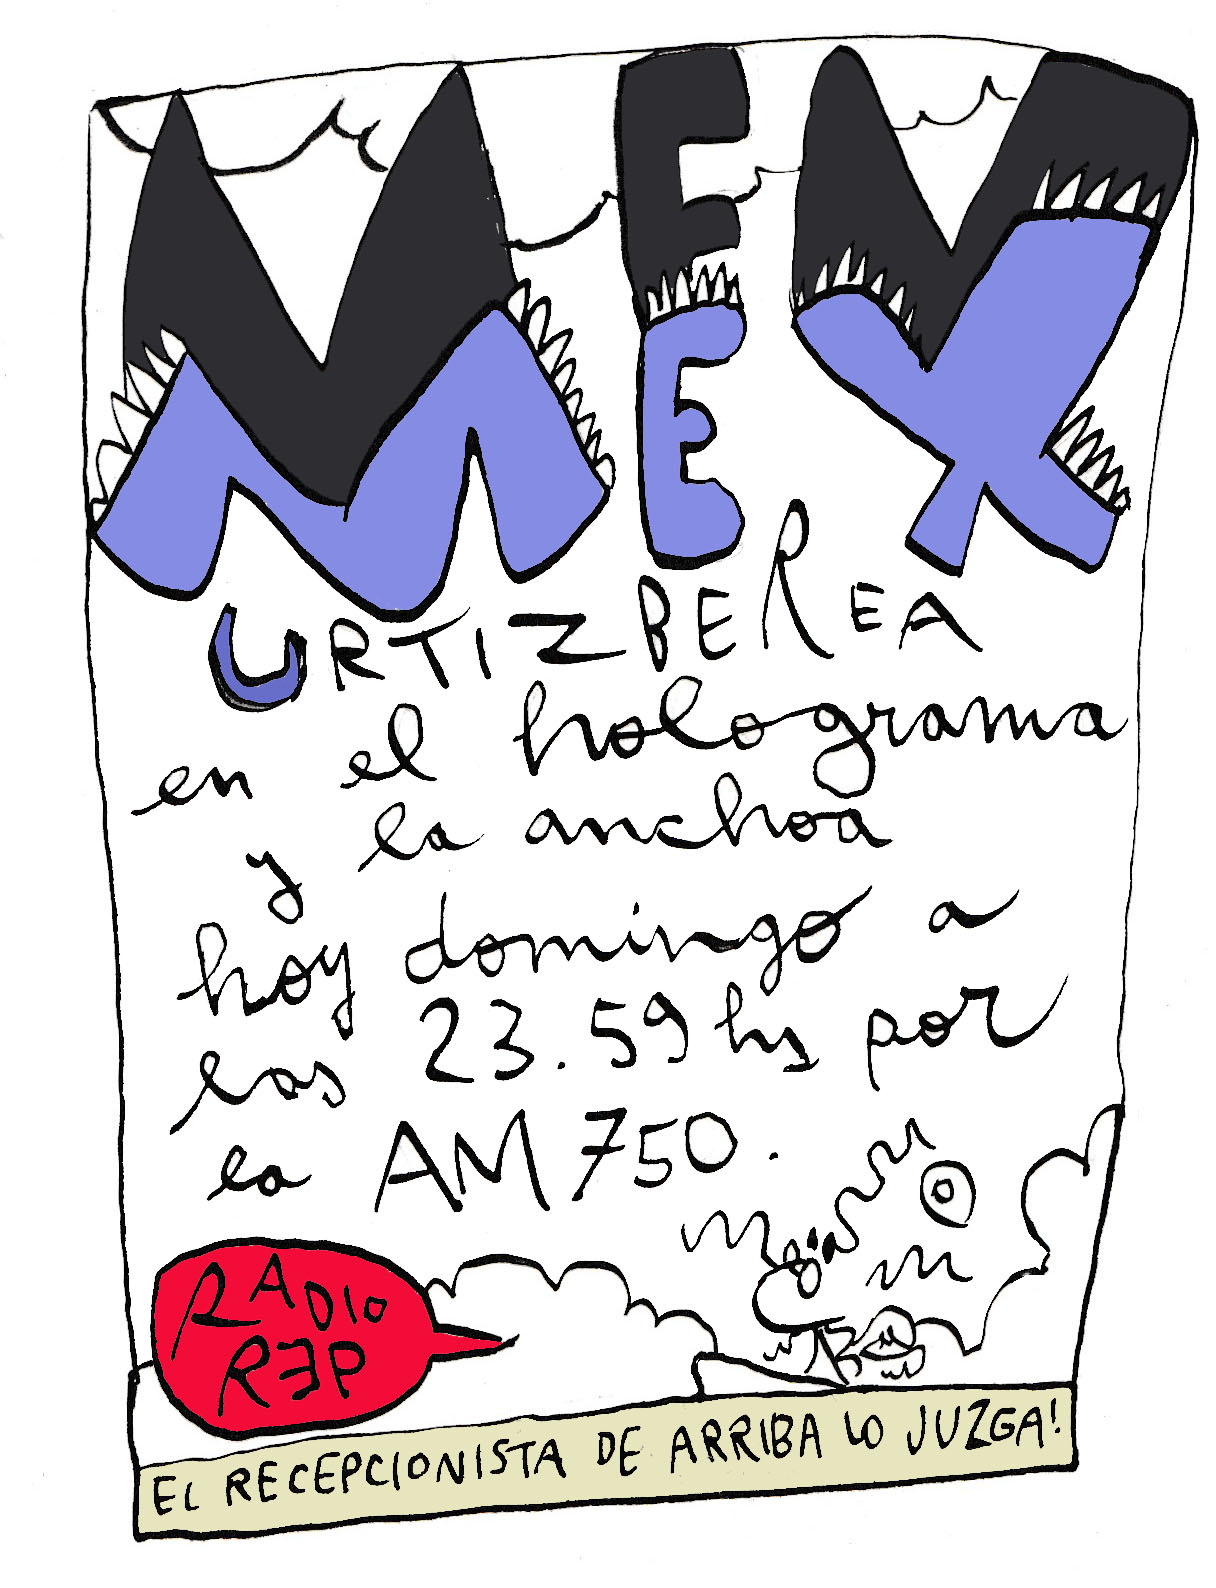 MEX
URTIZBEREA
en el holograma
y la anchoa
hoy domingo a
las 23.59 hs por
la AM 750.
RADIO
REP
EL RECEPCIONISTA DE ARRIBA LO JUZGA!